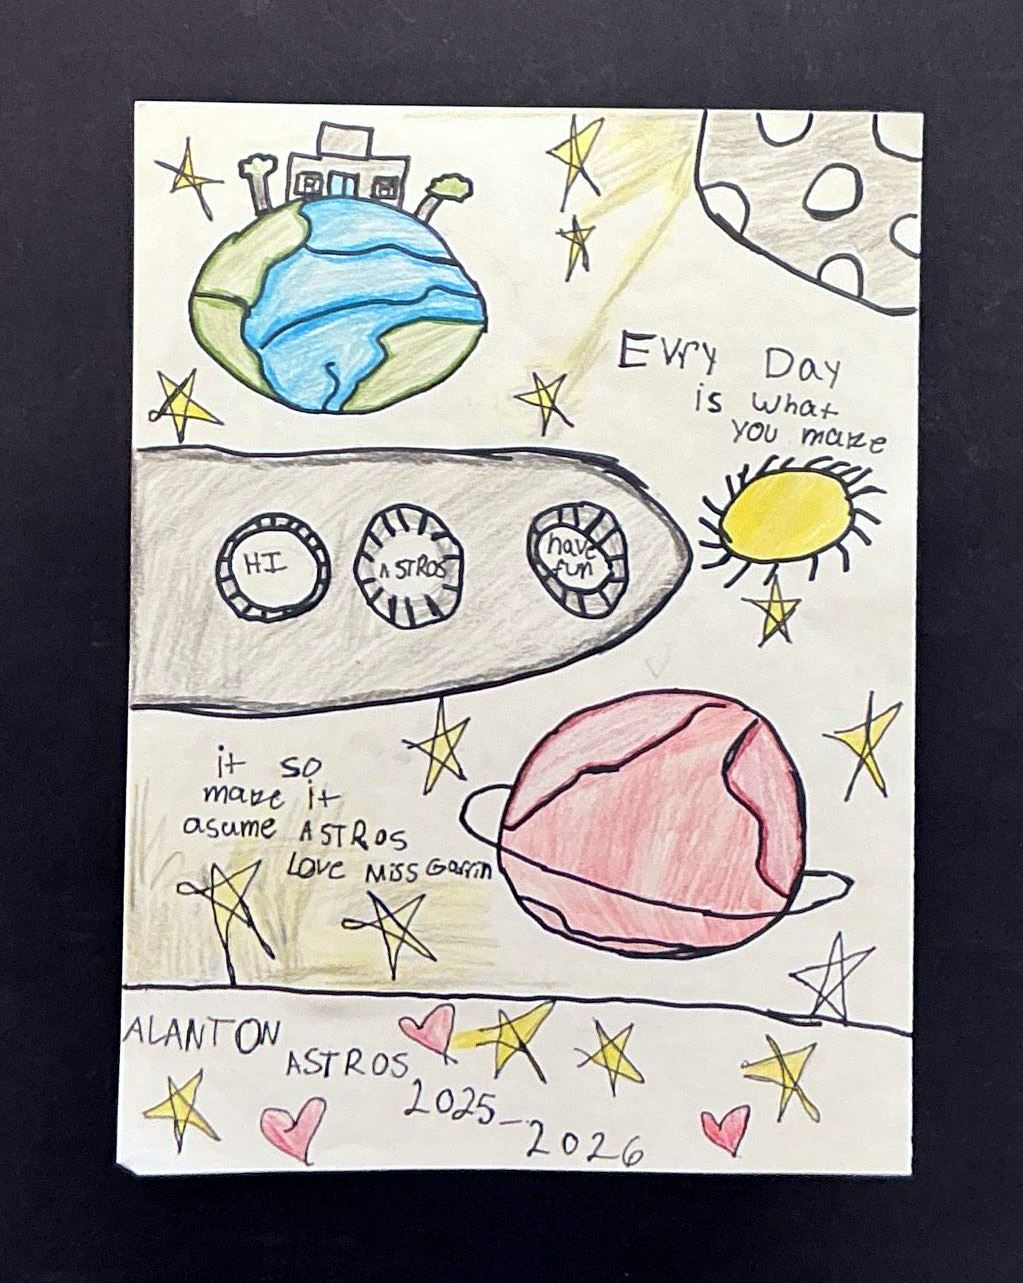 Evry Day
is what
you make
HI
ASTROS
have
fun
it so
make it
asume ASTROS
Love Miss Garrin
ALANTON
ASTROS
2025-
2026